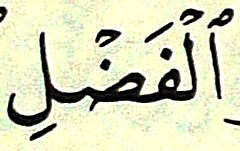 ٱلۡفَضۡلِ